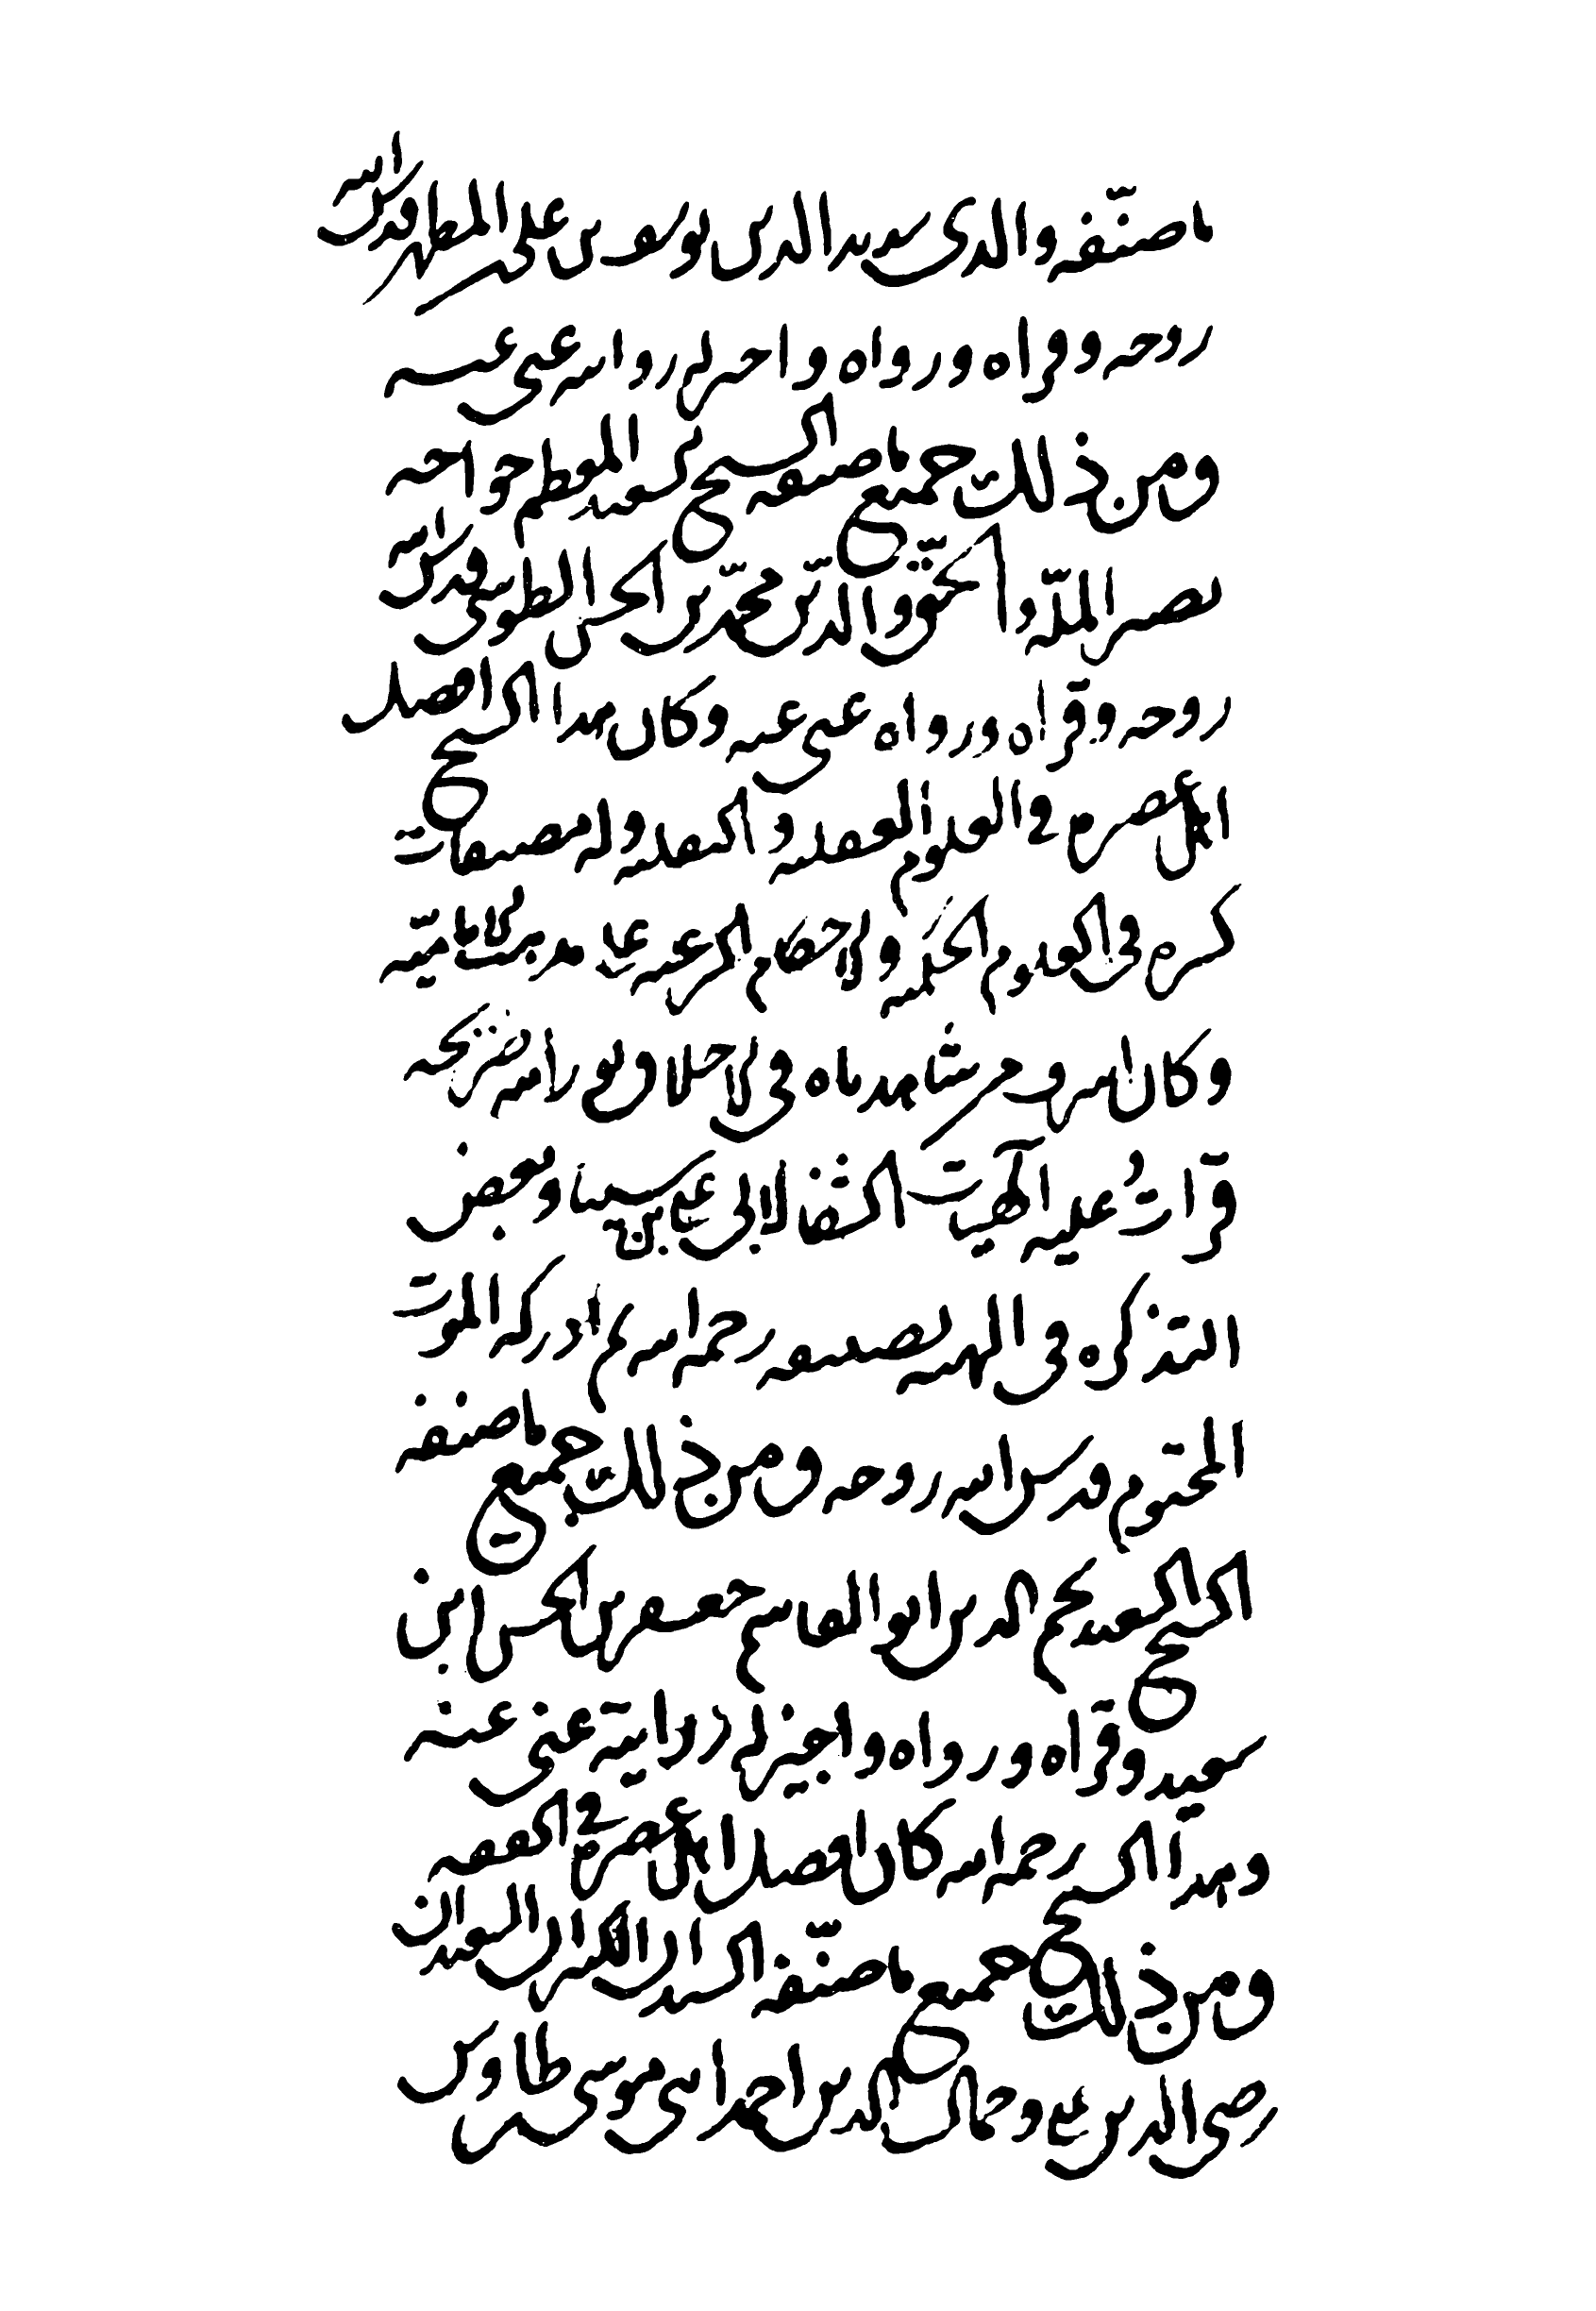 ما صنّفه والدي سديد الدين يوسف بن علي بن المطهر قدس الله
روحه وقراه ورواه واجيز له روايته عني عنه
ومن ذلك جميع ما صنفه الشيخ السعيد المعظم خواجه
نصير الملّة والحقّ والدّين محمّد بن الحسن الطوسي قدس الله
روحه وقراه ورواه عني عنه وكان هذا الشيخ افضل
اهل عصره في العلوم العقلية والنقلية وله مصنفات
كثيرة في العلوم الحكمية والاحكام الشرعية على مذهب الامامية
وكان اشرف من شاهدناه في الاخلاق نور الله ضريحه
قرات عليه الهيات الشفا لابي علي بن سينا وبعض
التذكره في الهيئة تصنيفه رحمه الله ثم ادركه الموت
المحتوم قدس الله روحه ومن ذلك جميع ما صنفه
الشيخ السعيد نجم الدين ابو القاسم جعفر بن الحسن ابن
سعيد وقراه ورواه واجيز له روايته عني عنه
وهذا الشيخ رحمه الله كان افضل اهل عصره في الفقه
ومن ذلك جميع ما صنّفه السيدان الكبيران السعيدان
رضي الدين علي وجمال الدين احمد ابني موسى بن طاوس